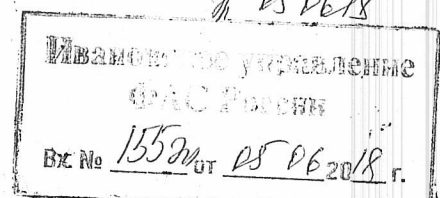 05 06 18
Ивановское управление
ФАС России
Вх № 155эл от 05 06 2018 г.